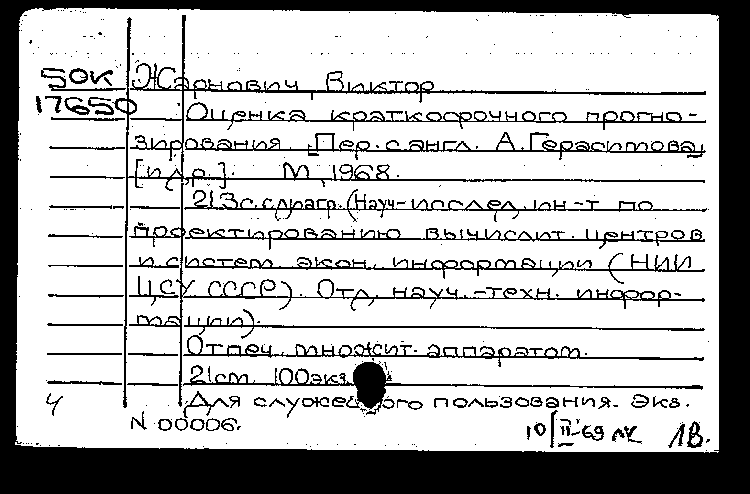 50К Жарнович, Виктор
17650 Оценка краткосрочного прогно-
зирования. [Пер. с англ. А. Герасимова
[и др.]. М., 1968.
213с. с диагр. (Науч-исслед. ин-т по
проектированию вычислит. центров
и систем экон. информации (НИИ
ЦСУ СССР). Отд. науч.-техн. инфор-
мации).
Отпеч. множит. аппаратом.
21см. 100экз.
Для служебного пользования. Экз.
N 00006.
4
10/II-69 1В.